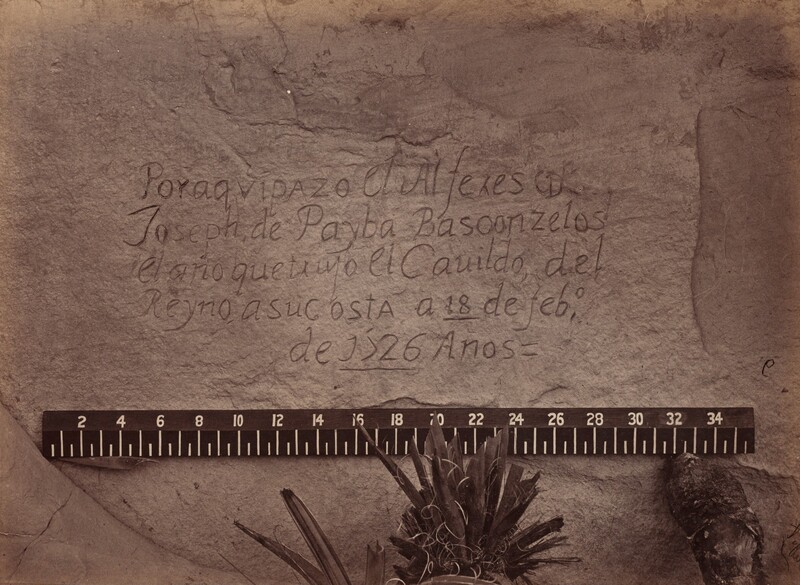 Por aqvi pazo el Alferes Dn
Joseph, de Payba Basconzelos
el año que trujo el Cauildo, del
Reyno a su costa a 18 de feb,o
de 1526 Años=
2 4 6 8 10 12 14 16 18 20 22 24 26 28 30 32 34